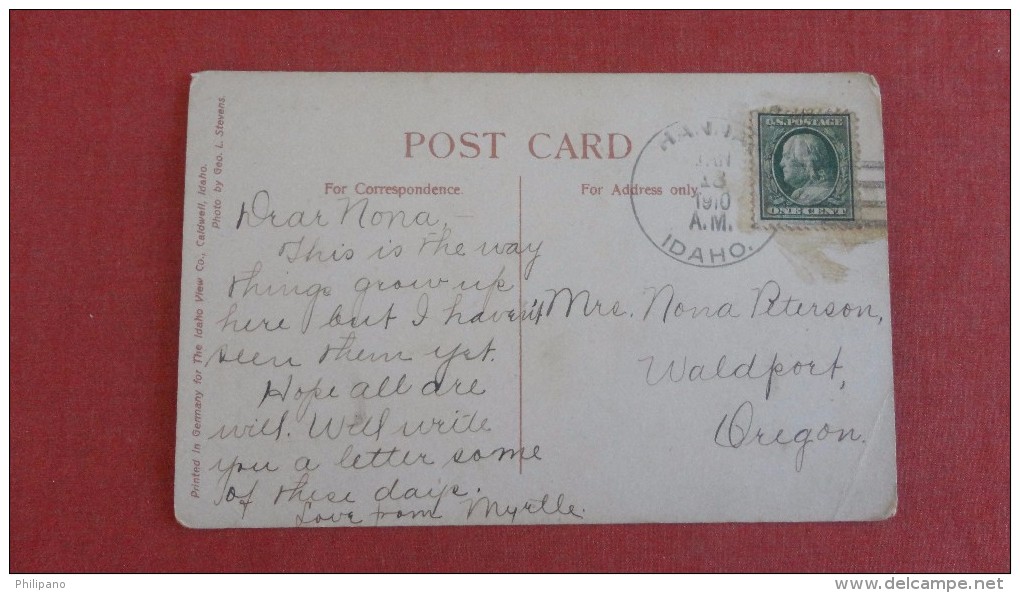 POST CARD
For Correspondence.
For Address only.
Printed in Germany for The Idaho View Co., Caldwell, Idaho.
Photo by Geo. L. Stevens.
Dear Nona,—
This is the way
things grow up
here but I haven't
seen them yet.
Hope all are
well. Will write
you a letter some
of these days.
Love from Myrtle.
HANNA
JAN
13
1910
A.M.
IDAHO.
U.S. POSTAGE
ONE CENT
Mrs. Nona Peterson,
Waldport,
Oregon.
Philipano
www.delcampe.net